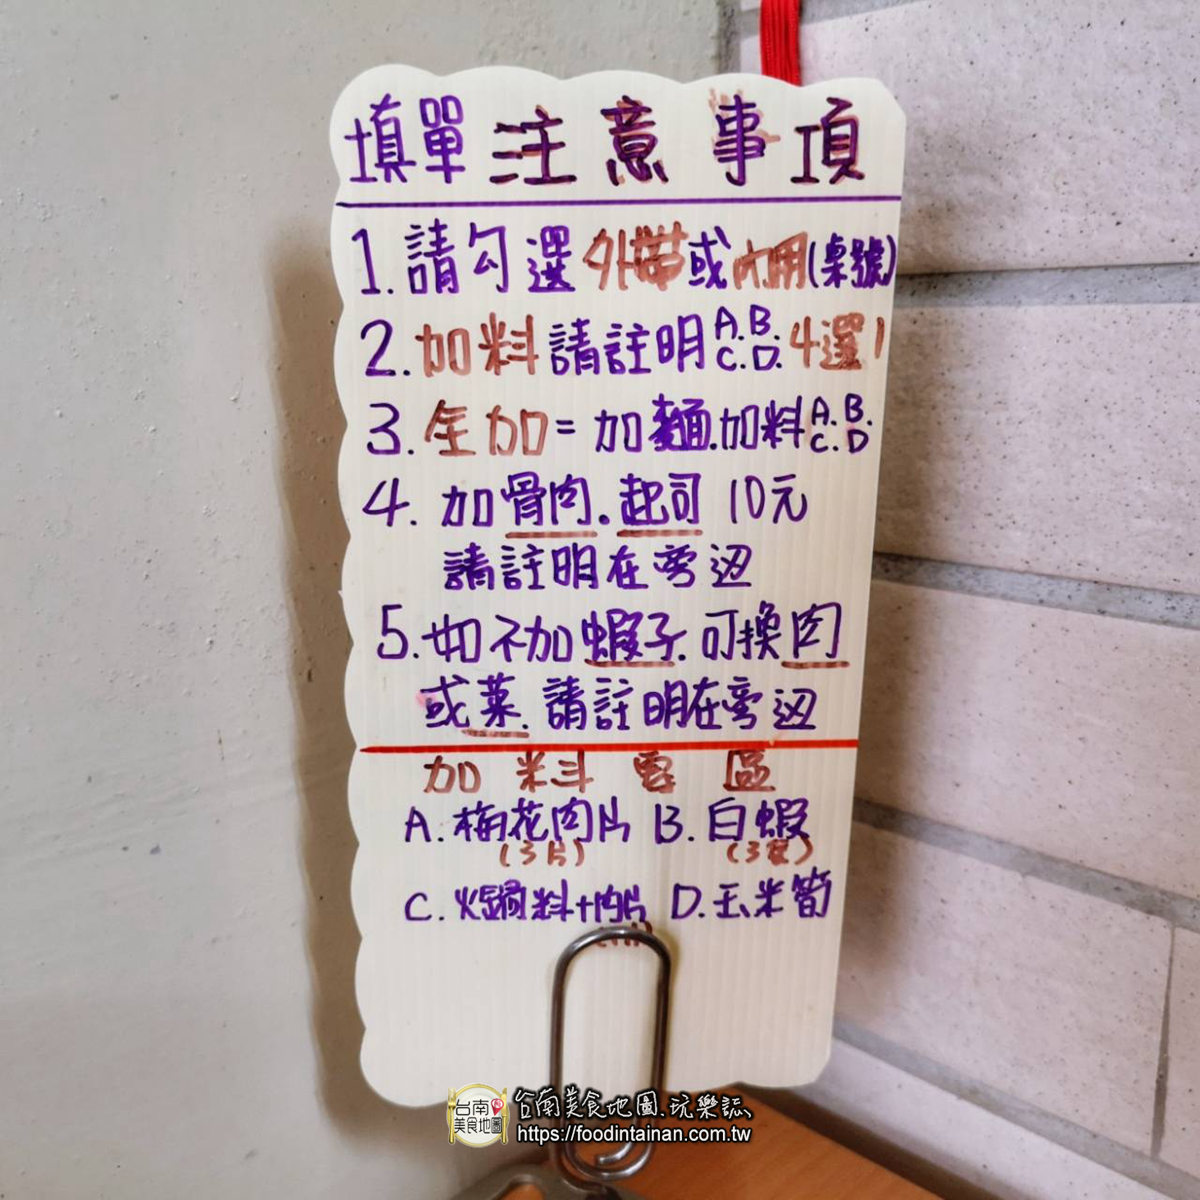 填單注意事項
1.請勾選外帶或內用(桌號)
2.加料請註明A.B.C.D.4選1
3.全加=加麵.加料A.B.C.D
4.加骨肉.起司10元
請註明在旁边
5.如不加蝦子.可換肉
或菜.請註明在旁边
加料專區
A.梅花肉片 B.白蝦
(3片) (3隻)
C.火鍋料+肉片 D.玉米筍
台南美食地圖
台南美食地圖.玩樂誌
https://foodintainan.com.tw